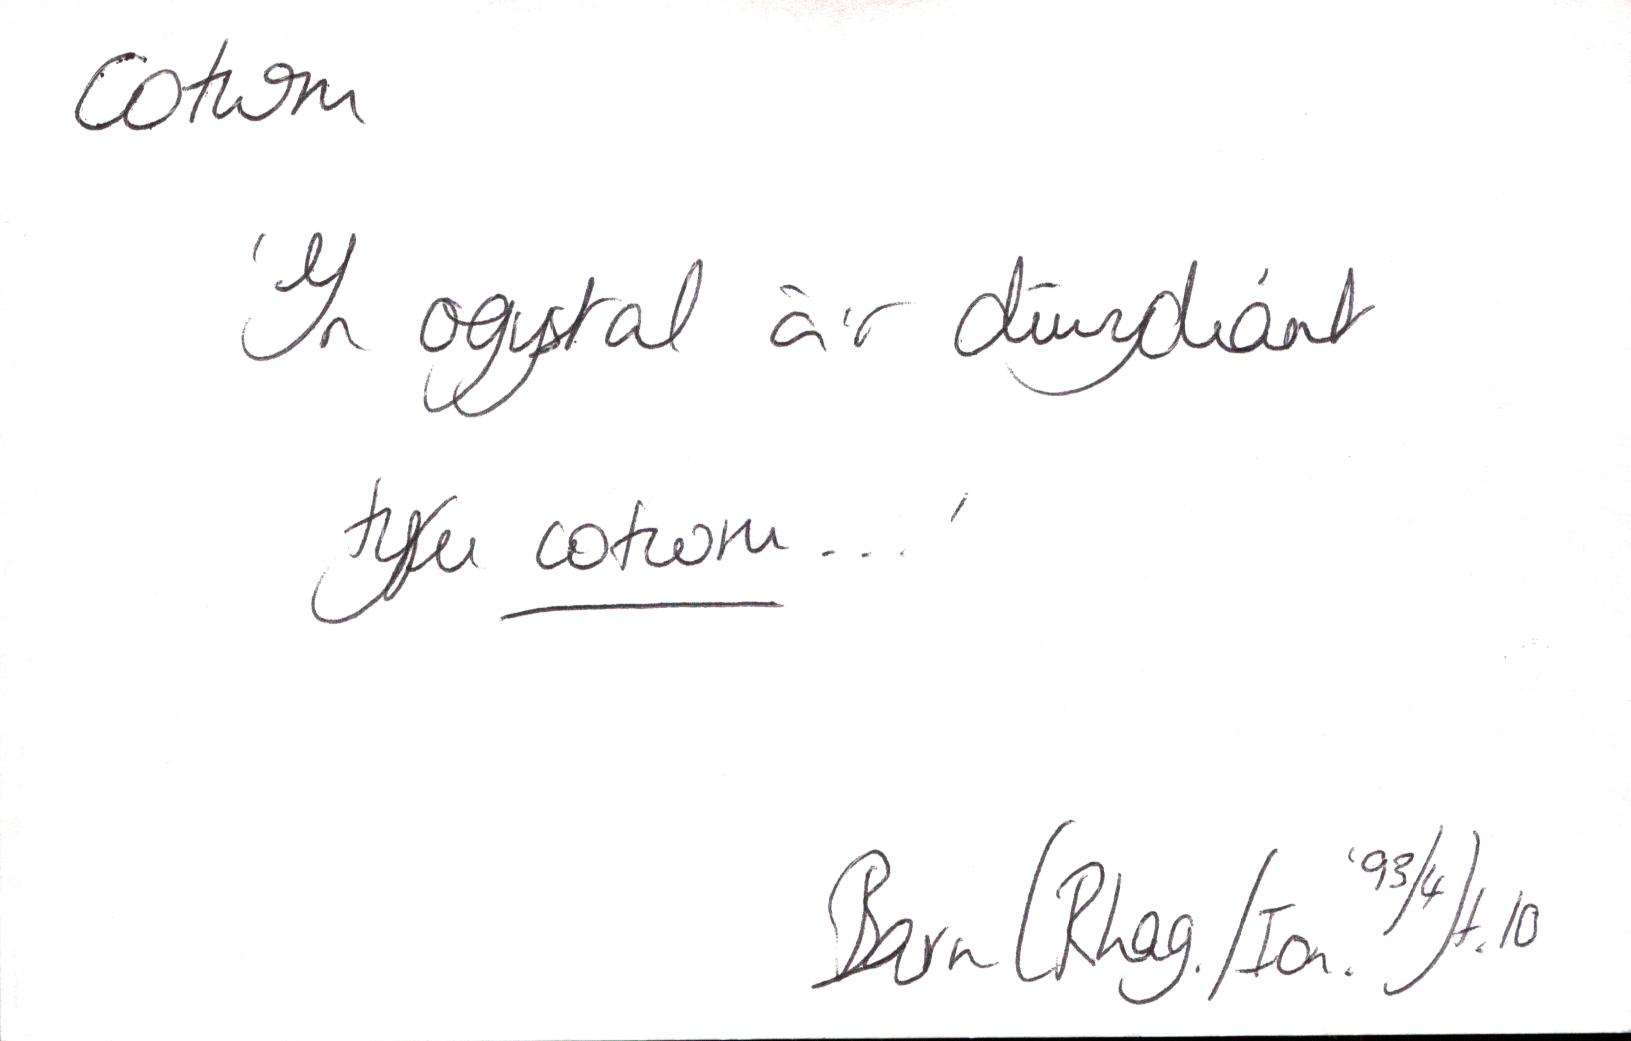 cotwm
'Yn ogystal â'r diwydiánt
tyfu cotwm...'
Barn (Rhag./Ion. '93/4) t.10